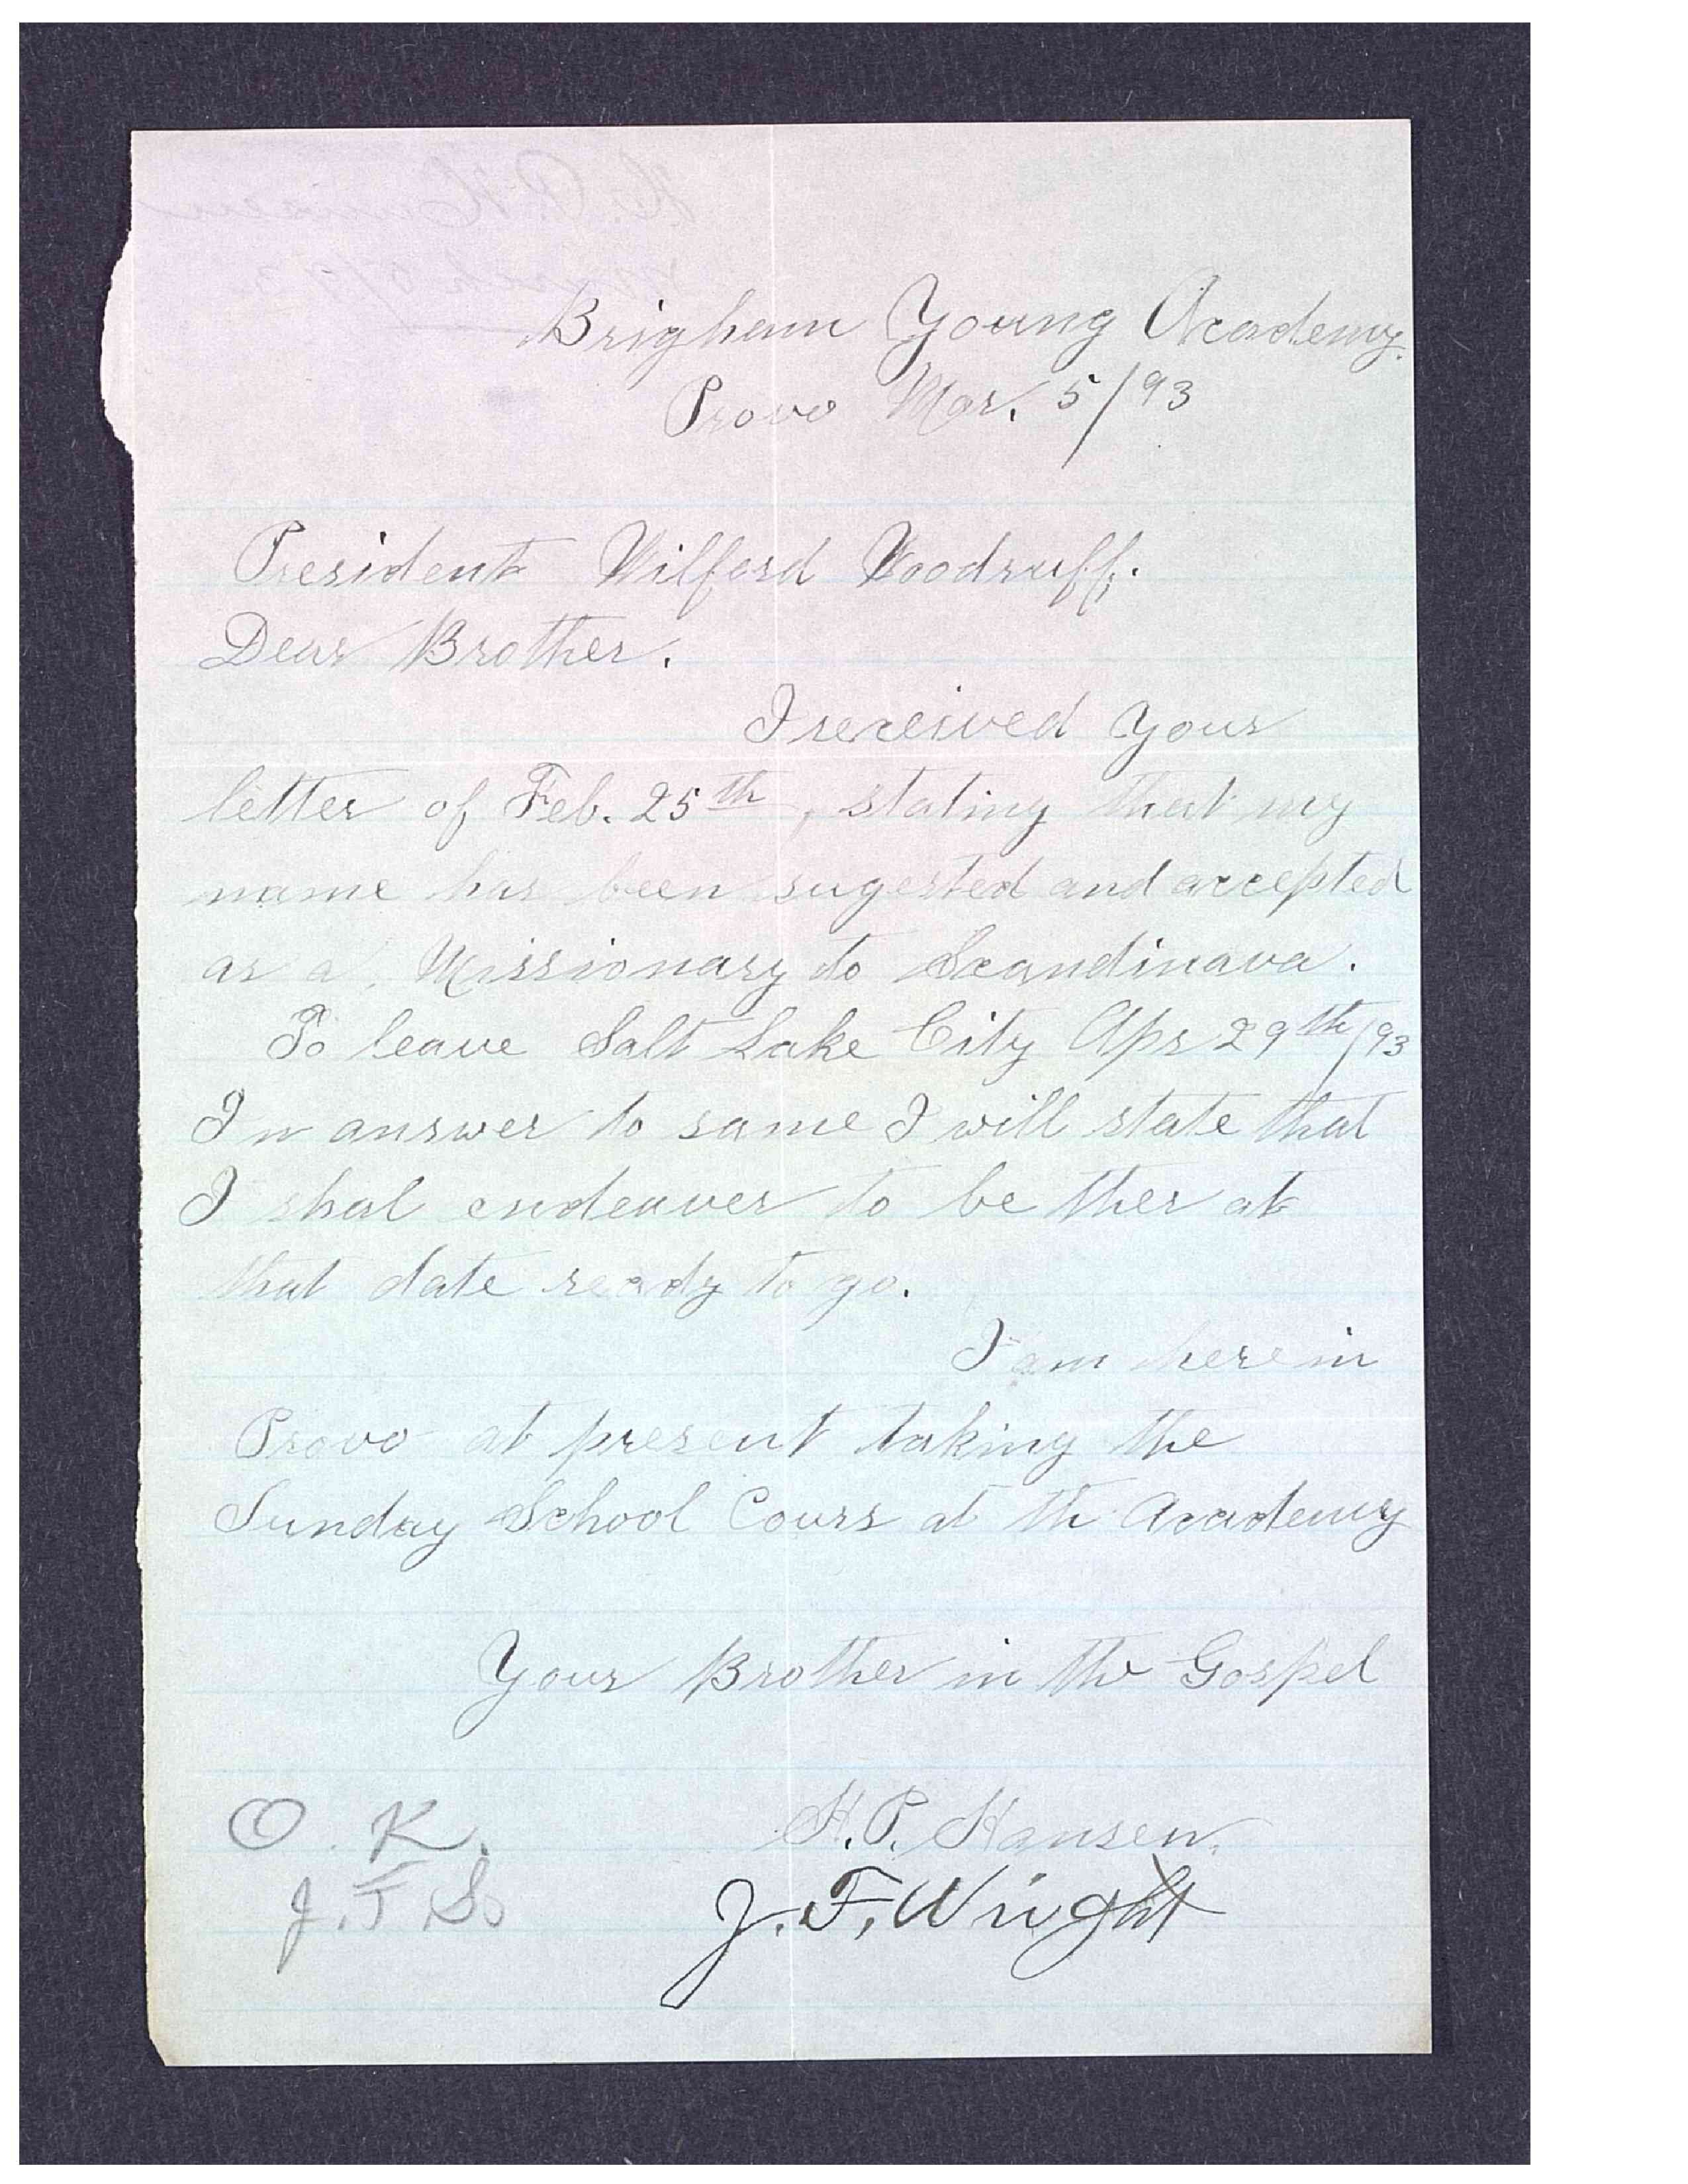 Brigham Young Academy.
Provo Mar. 5/93
President Wilford Woodruff.
Dear Brother.
I received your
letter of Feb. 25th, stating that my
name has been sugested and accepted
as a Missionary to Scandinava.
To leave Salt Lake City Apr 29th/93
In answer to same I will state that
I shal endeaver to be ther at
that date ready to go.
I am here in
Provo at present taking the
Sunday School Cours at th Academy
Your Brother in the Gospel
H. P. Hansen.
J. F. Wright
O. K.
J. F. S.